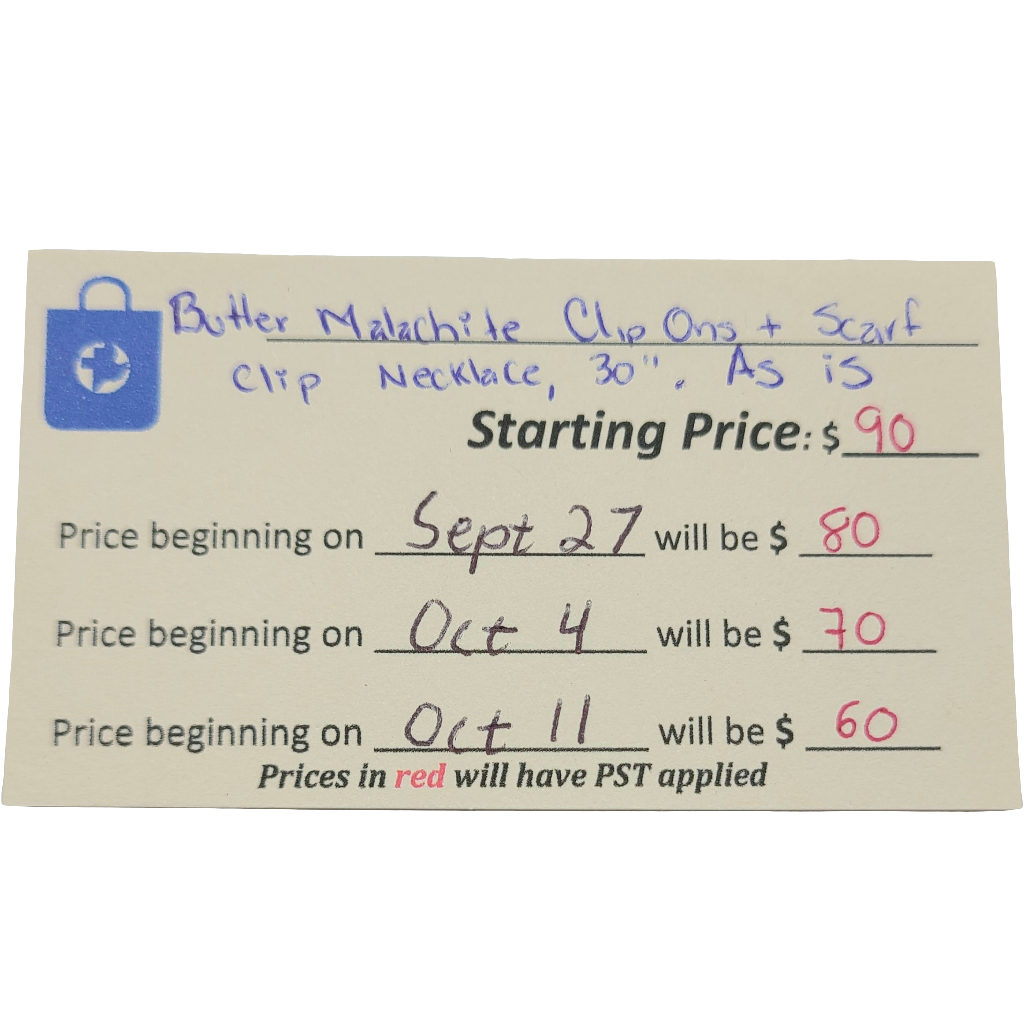 Butler Malachite Clip Ons + Scarf
Clip Necklace, 30". As is
Starting Price: $ 90
Price beginning on Sept 27 will be $ 80
Price beginning on Oct 4 will be $ 70
Price beginning on Oct 11 will be $ 60
Prices in red will have PST applied